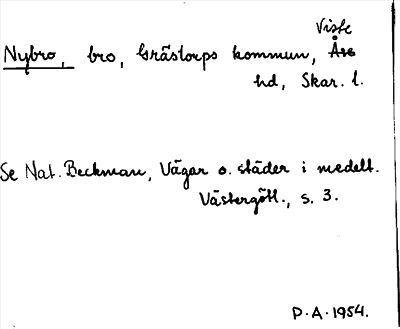 Viste
Nybro, bro, Grästorps kommun, Åse
hd, Skar. l.
Se Nat. Beckman, Vägar o. städer i medelt.
Västergötl., s. 3.
P.A.1954.